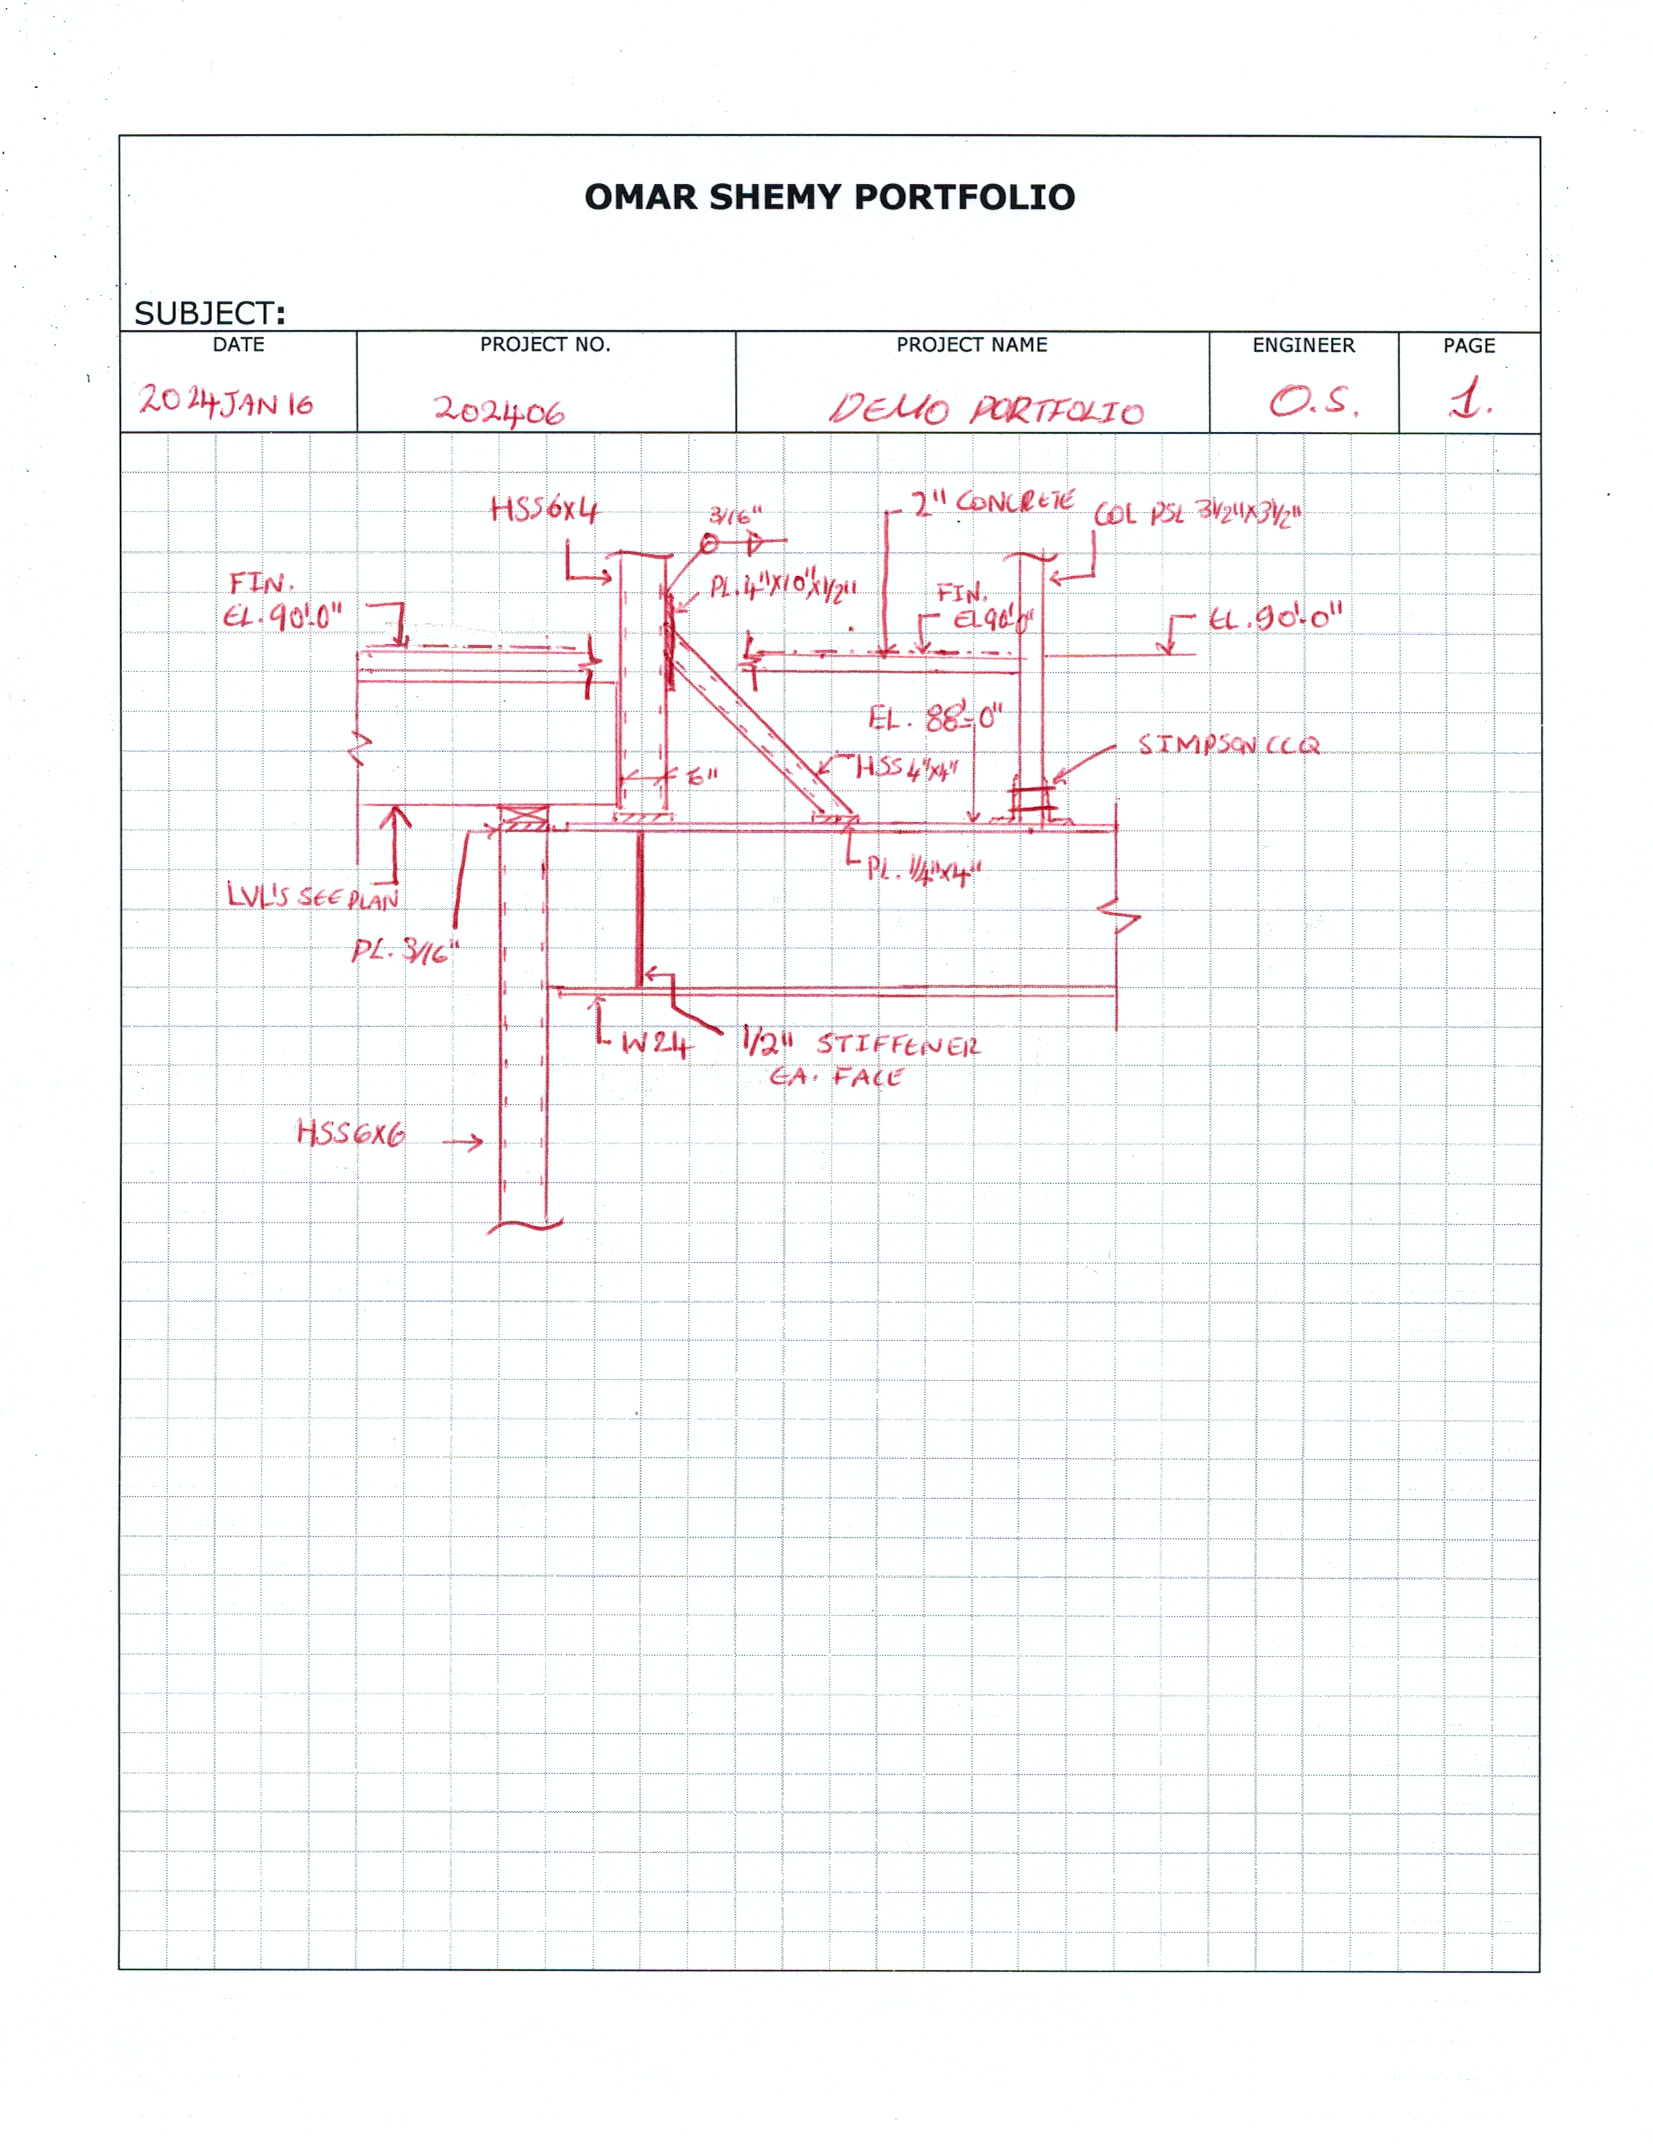 OMAR SHEMY PORTFOLIO
SUBJECT:
DATE
PROJECT NO.
PROJECT NAME
ENGINEER
PAGE
2024JAN16
202406
DEMO PORTFOLIO
O.S.
1.
HSS6X4
3/16"
2" CONCRETE
COL PSL 3½"X3½"
FIN.
EL.90'-0"
PL.4"X10"X1/2"
FIN.
EL90'-0"
EL.90'-0"
EL. 88'-0"
SIMPSON CCQ
HSS4"X4"
6"
PL. 1/4"X4"
LVL'S SEE PLAN
PL. 3/16"
W24
1/2" STIFFENER
EA. FACE
HSS6X6